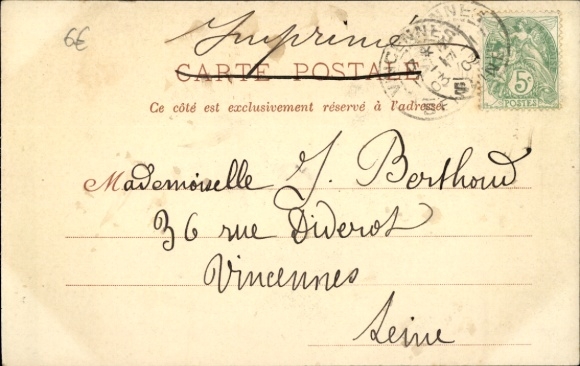 6€
Imprimé
CARTE POSTALE
Ce côté est exclusivement réservé à l'adresse
VINCENNES
5c
POSTES
Mademoiselle J. Berthoud
36 rue Diderot
Vincennes
Seine